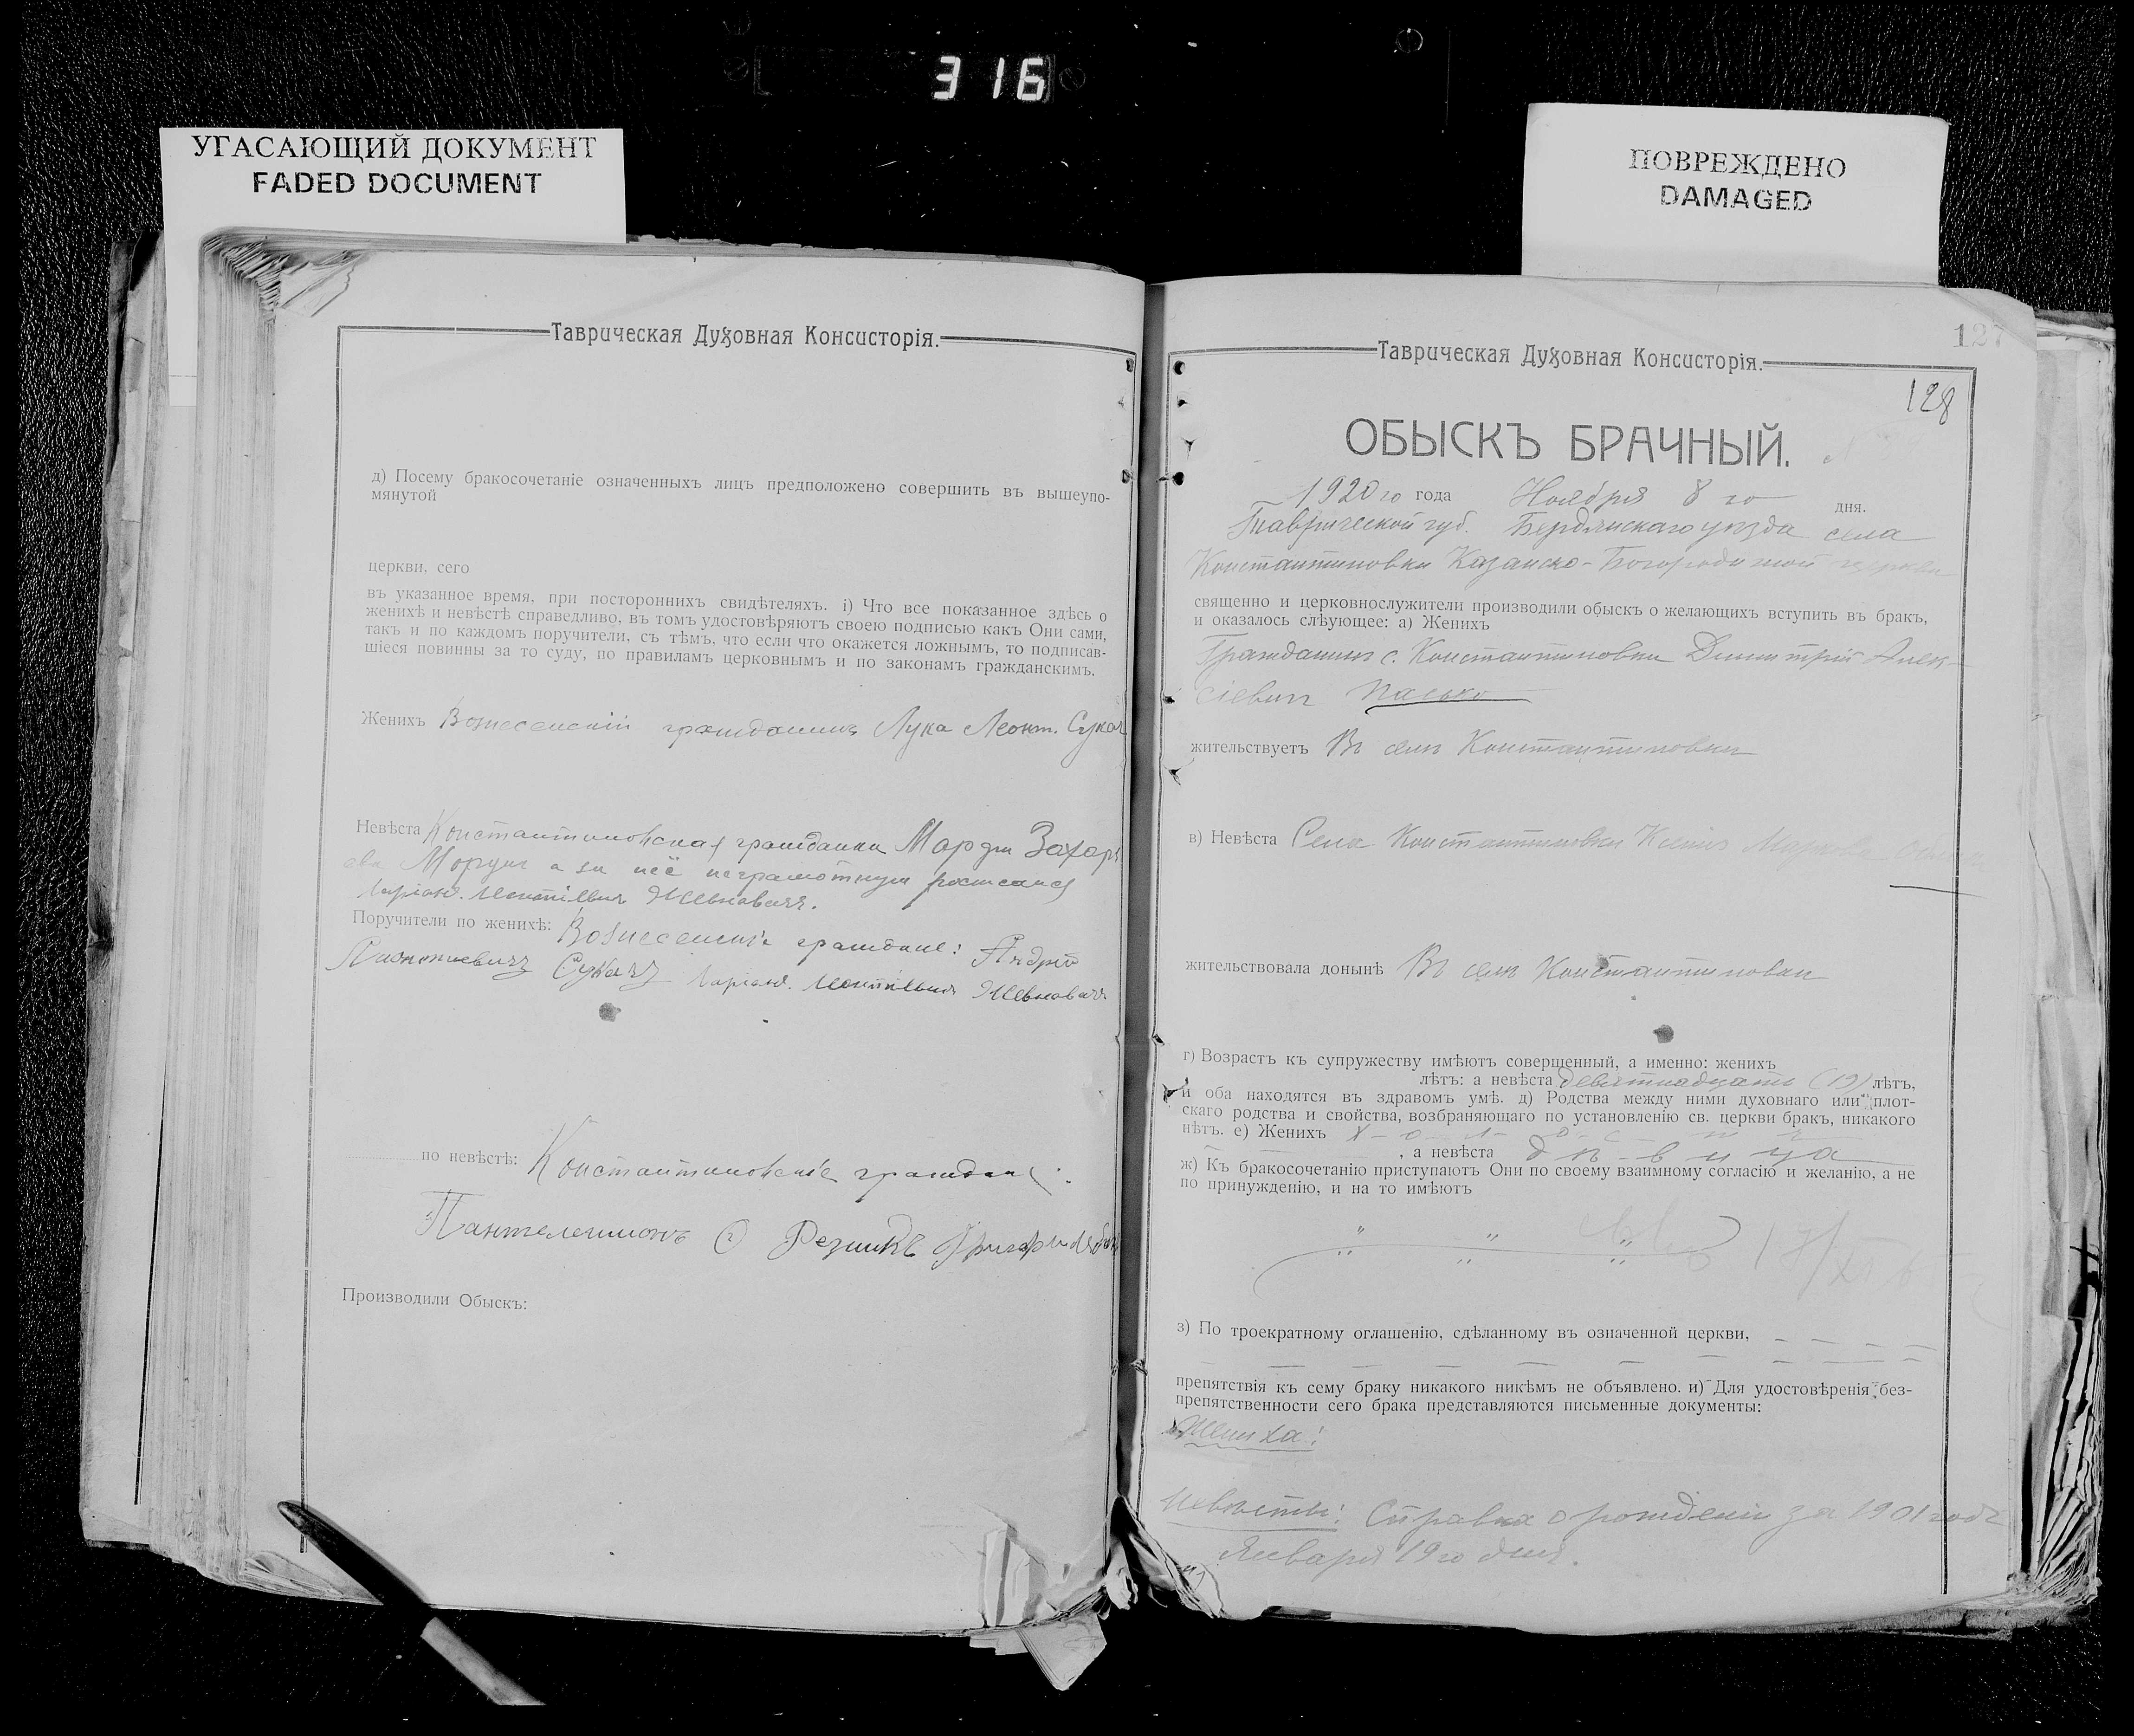 316
УГАСАЮЩИЙ ДОКУМЕНТ
FADED DOCUMENT
ПОВРЕЖДЕНО
DAMAGED
Таврическая Духовная Консисторія.
д) Посему бракосочетаніе означенныхъ лицъ предположено совершить въ вышеупо-
мянутой
церкви, сего
въ указанное время, при постороннихъ свидѣтеляхъ. і) Что все показанное здѣсь о
женихѣ и невѣстѣ справедливо, въ томъ удостовѣряютъ своею подписью какъ Они сами,
такъ и по каждомъ поручители, съ тѣмъ, что если что окажется ложнымъ, то подписав-
шіеся повинны за то суду, по правиламъ церковнымъ и по законамъ гражданскимъ.
Женихъ Вознесенскій гражданинъ Лука Леонт. Сукач
Невѣста Константиновская гражданка Марфа Захарь
а за неё неграмотную росписался
Поручители по женихѣ: Вознесенскіе граждане: Андрей
Леонтиевичъ Сукачъ
по невѣстѣ: Константиновскіе граждане:
Пантелеимонъ Резникъ
Производили Обыскъ:
Таврическая Духовная Консисторія.
127
128
ОБЫСКЪ БРАЧНЫЙ.
1920 го года Ноября 8 го дня.
Таврической губ. Бердянскаго уѣзда села
Константиновки Казанско-Богородичной церкви
священно и церковнослужители производили обыскъ о желающихъ вступить въ бракъ,
и оказалось слѣующее: а) Женихъ
Гражданинъ с. Константиновки Димитрій Алек-
сіевич Пасько
жительствуетъ Въ селѣ Константиновки
в) Невѣста Села Константиновки Маркова
жительствовала донынѣ Въ селѣ Константиновки
г) Возрастъ къ супружеству имѣютъ совершенный, а именно: женихъ
лѣтъ: а невѣста девятнадцать (19) лѣтъ,
и оба находятся въ здравомъ умѣ. д) Родства между ними духовнаго или плот-
скаго родства и свойства, возбраняющаго по установленію св. церкви бракъ, никакого
нѣтъ. е) Женихъ х-о-л-о-с-т-ъ
, а невѣста д-ѣ-в-и-ца
ж) Къ бракосочетанію приступаютъ Они по своему взаимному согласію и желанію, а не
по принужденію, и на то имѣютъ
з) По троекратному оглашенію, сдѣланному въ означенной церкви,
препятствія къ сему браку никакого никѣмъ не объявлено. и) Для удостовѣренія без-
препятственности сего брака представляются письменные документы:
Жениха:
Невѣсты: Справка о рожденіи за 1901 годъ
Января 19 го дня.